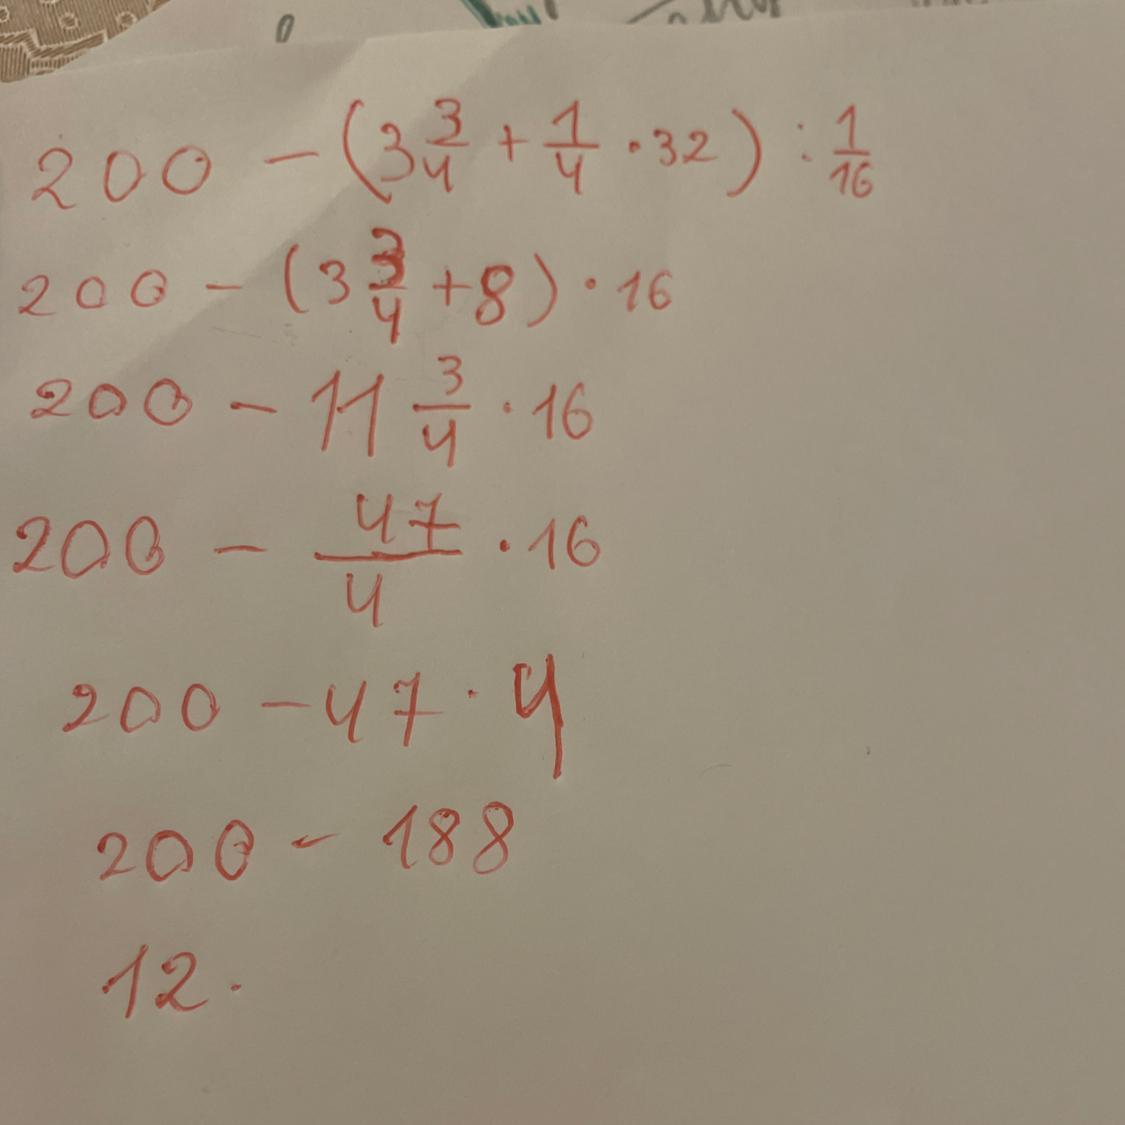 200 - (3 3/4 + 1/4 · 32) : 1/16
200 - (3 3/4 + 8) · 16
200 - 11 3/4 · 16
200 - 47/4 · 16
200 - 47 · 4
200 - 188
12.